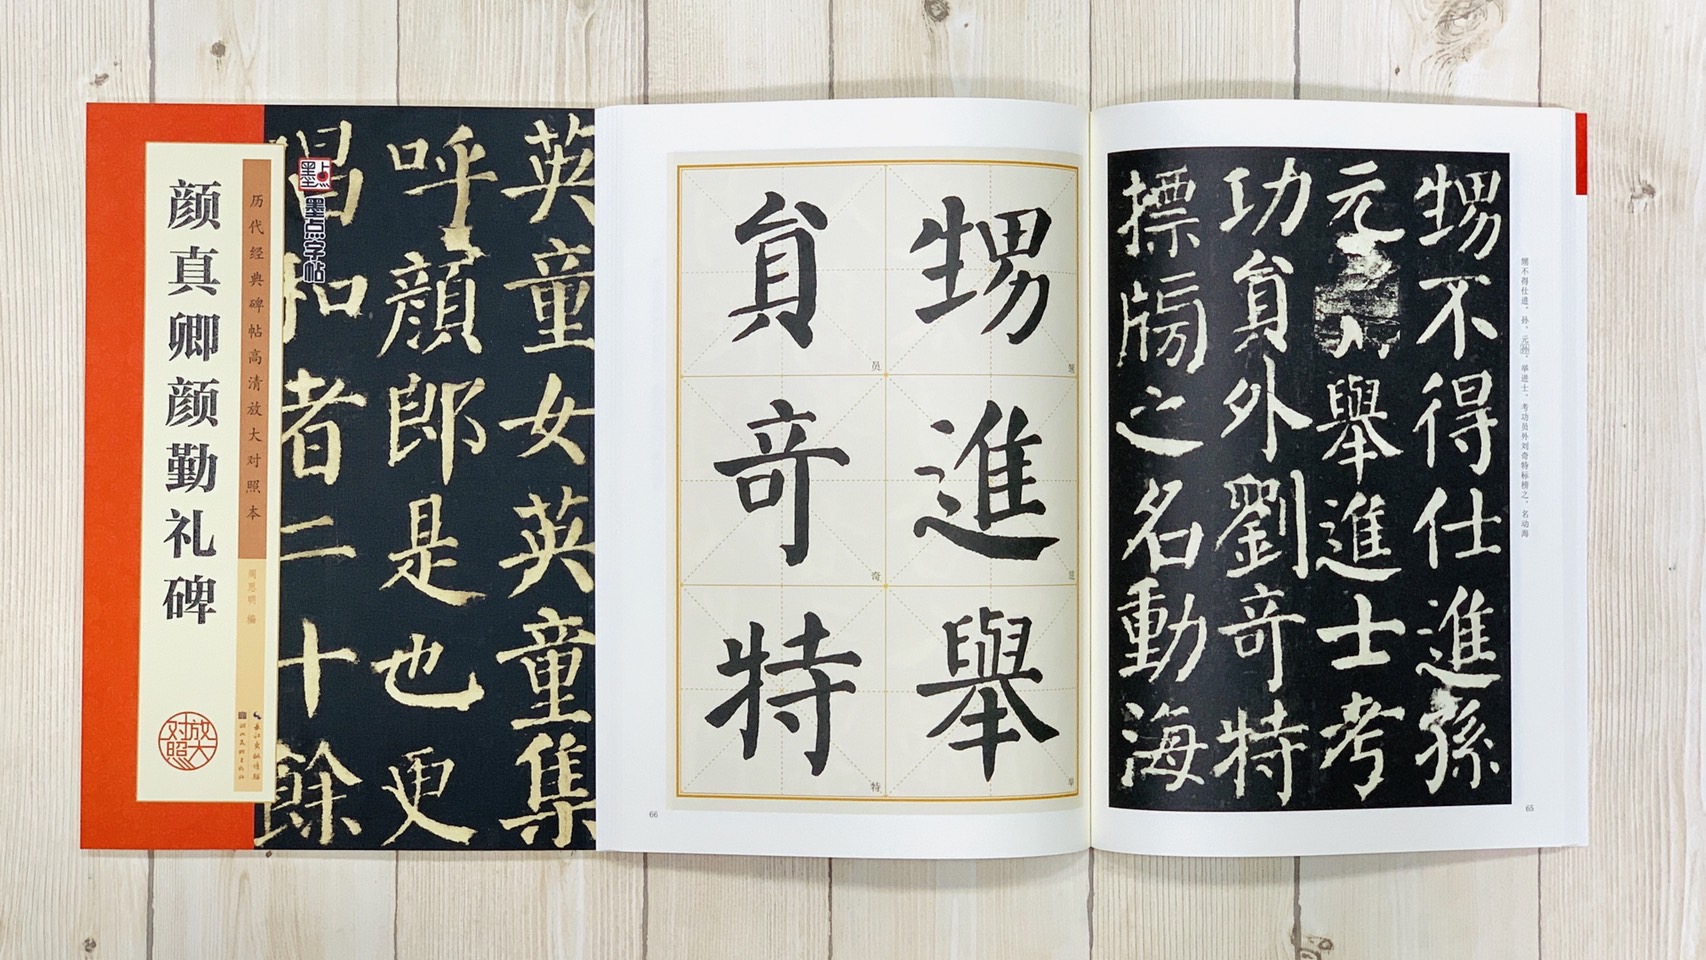 颜真卿颜勤礼碑
历代经典碑帖高清放大对照本
周思明 编
放大对照
长江出版传媒
湖北美术出版社
墨点
墨点字帖
英童女英童集
呼顔郎是也更
唱和者二十餘
甥不得仕進孫
元 舉進士考
功貟外劉竒特
摽牓之名動海
甥不得仕进。孙，元孙，举进士，考功员外刘奇特标榜之，名动海
65
甥進舉
貟竒特
甥
进
举
员
奇
特
66